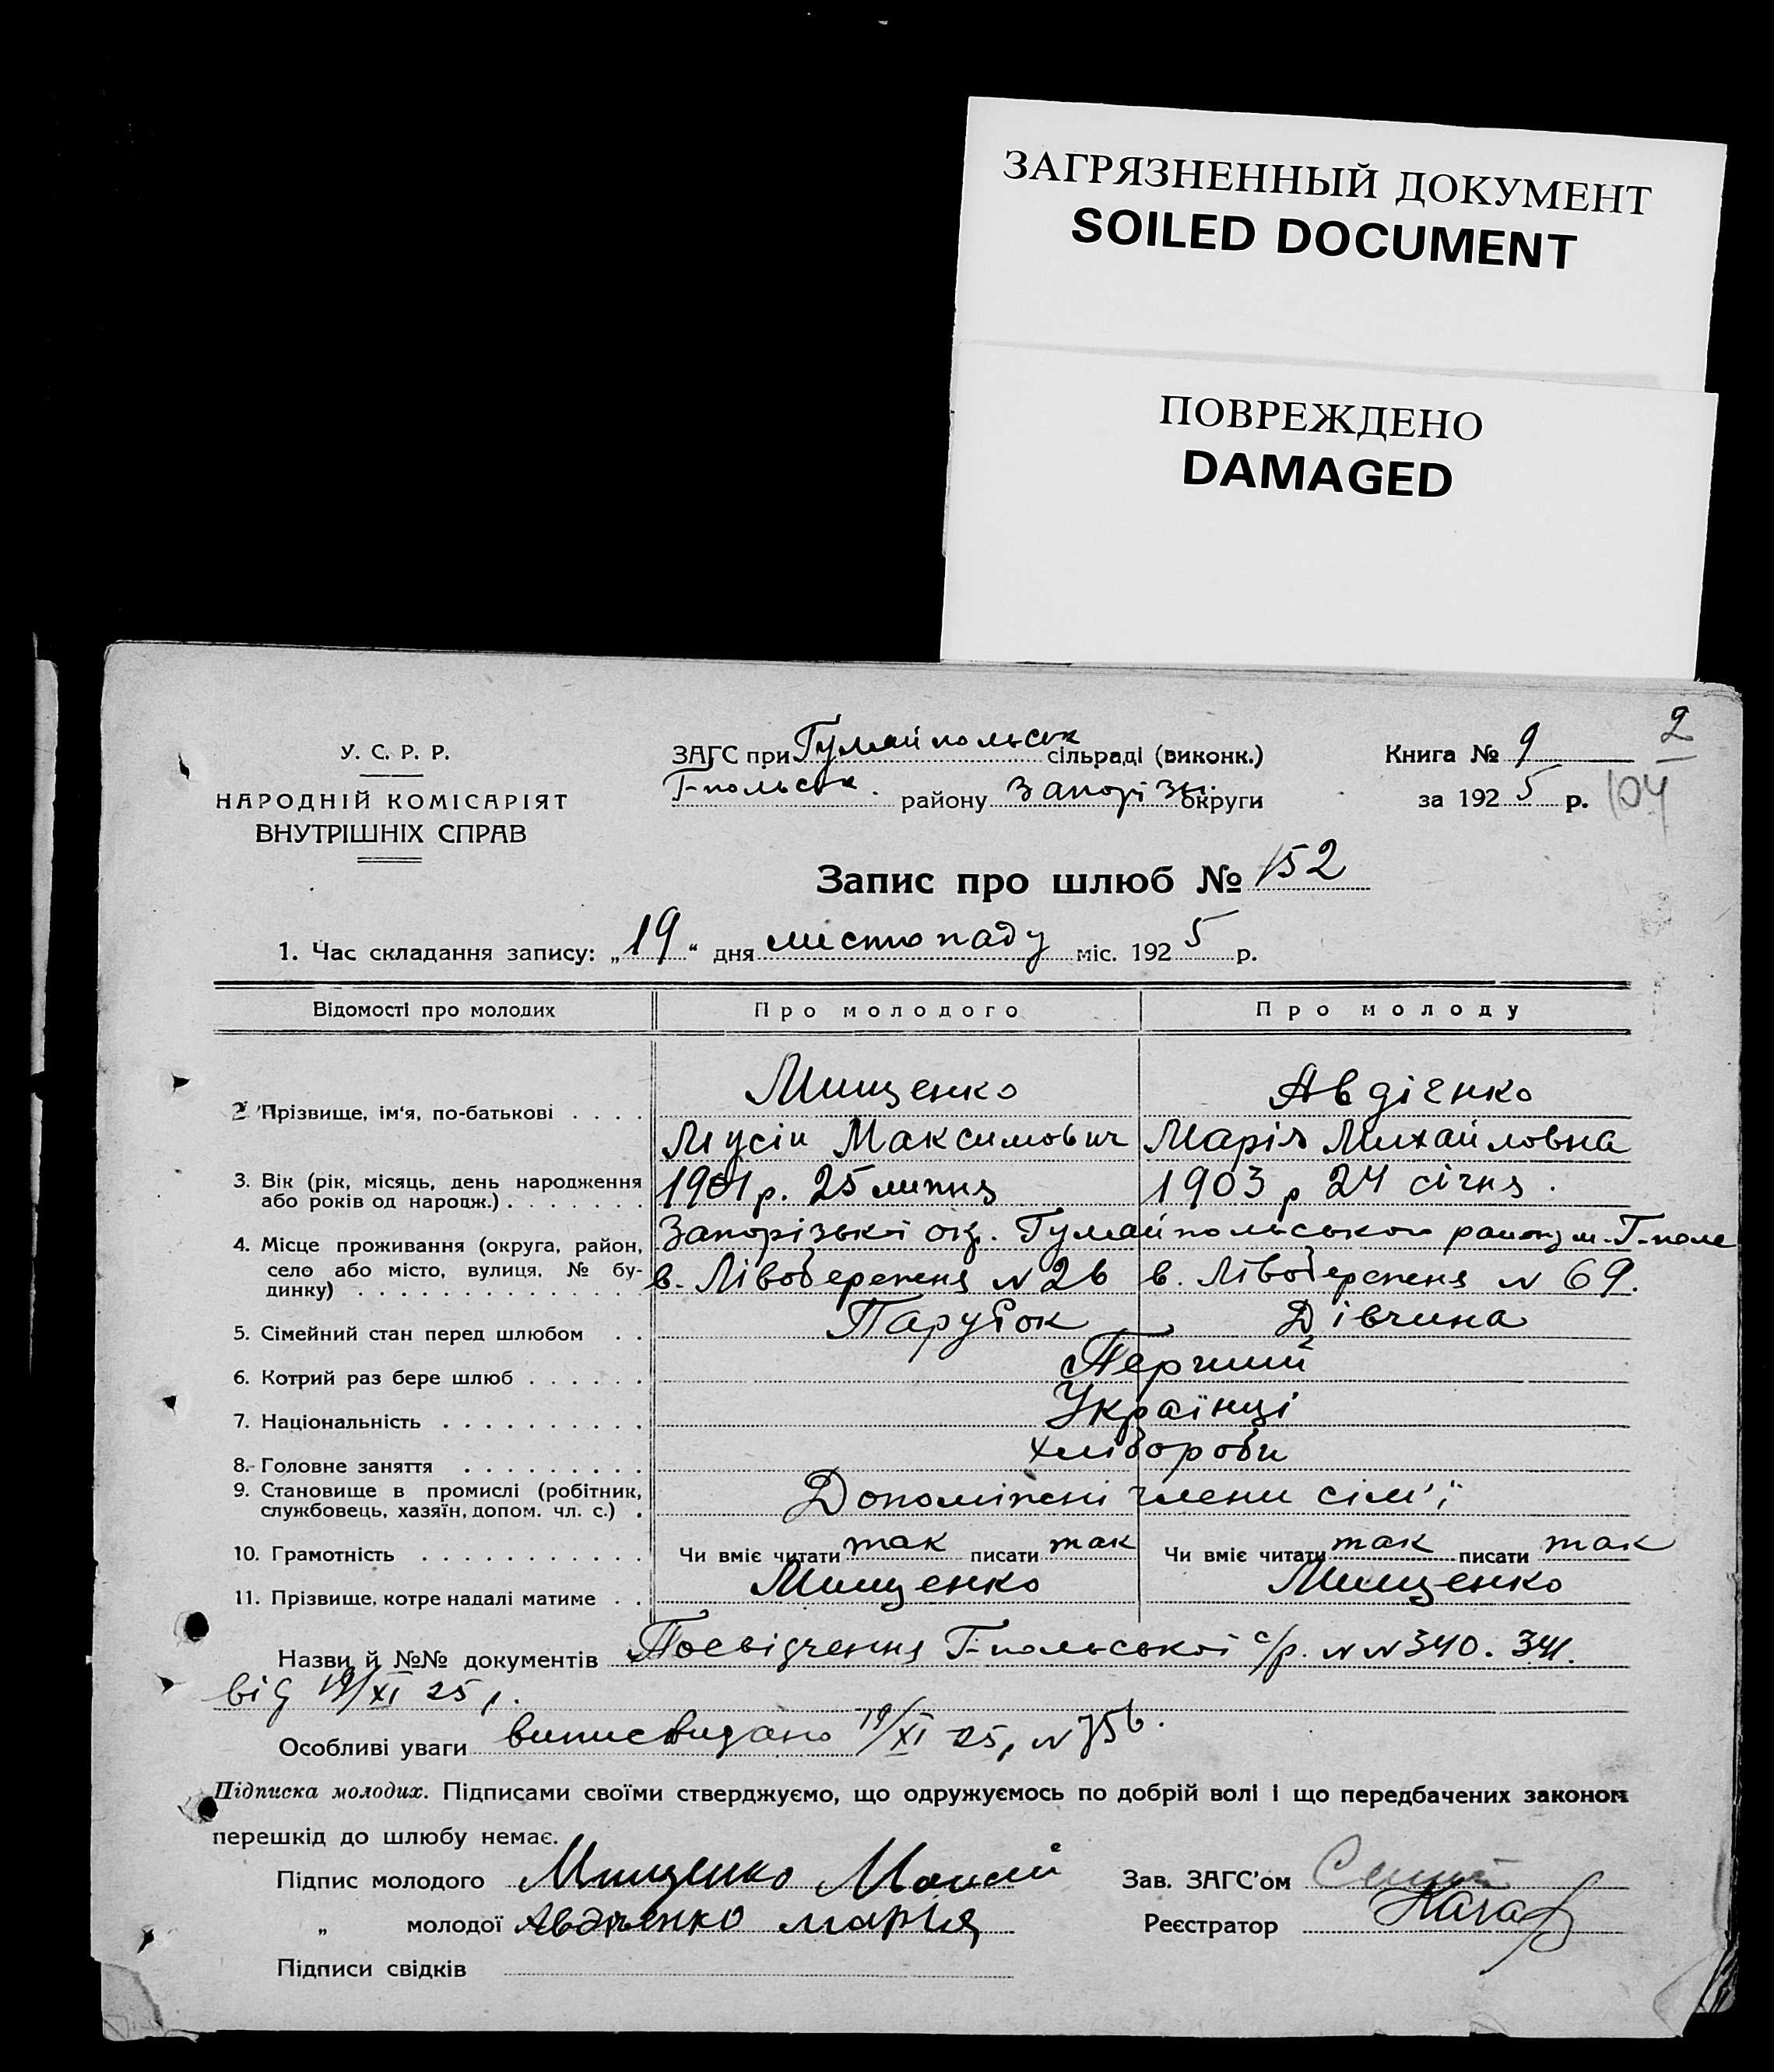 ЗАГРЯЗНЕННЫЙ ДОКУМЕНТ
SOILED DOCUMENT
ПОВРЕЖДЕНО
DAMAGED
2
У. С. Р. Р.
НАРОДНІЙ КОМІСАРІЯТ
ВНУТРІШНІХ СПРАВ
ЗАГС при Гуляйпольськ сільраді (виконк.)
Г-польськ. району Запорізьк. округи
Книга № 9
за 1925 р. 104
Запис про шлюб № 152
1. Час складання запису: „19“ дня листопаду міс. 1925 р.
Відомості про молодих Про молодого Про молоду
Мищенко Авдієнко
2 Прізвище, ім'я, по-батькові
Мусій Максимович Марія Михайловна
3. Вік (рік, місяць, день народження
або років од народж.) 1901 р. 25 липня 1903 р 24 січня.
4. Місце проживання (округа, район, Запорізької окр. Гуляйпольського району м. Г-поле
село або місто, вулиця, № бу-
динку) в. Лівобережня N 26 в. Лівобережня N 69.
5. Сімейний стан перед шлюбом Парубок Дівчина
6. Котрий раз бере шлюб Перший
7. Національність Українці
8. Головне заняття хлібороби
9. Становище в промислі (робітник,
службовець, хазяїн, допом. чл. с.) Допоміжні члени сім'ї
10. Грамотність Чи вміє читати так писати так Чи вміє читати так писати так
11. Прізвище, котре надалі матиме Мищенко Мищенко
Назви й №№ документів Посвідчення Г-польської с/р. NN 340. 341.
від 19/XI 25 р.
Особливі уваги випис видано 19/XI 25 р N 756.
Підписка молодих. Підписами своїми стверджуємо, що одружуємось по добрій волі і що передбачених законом
перешкід до шлюбу немає.
Підпис молодого Мищенко Зав. ЗАГС'ом
„ молодої Авдієнко марія Реєстратор
Підписи свідків